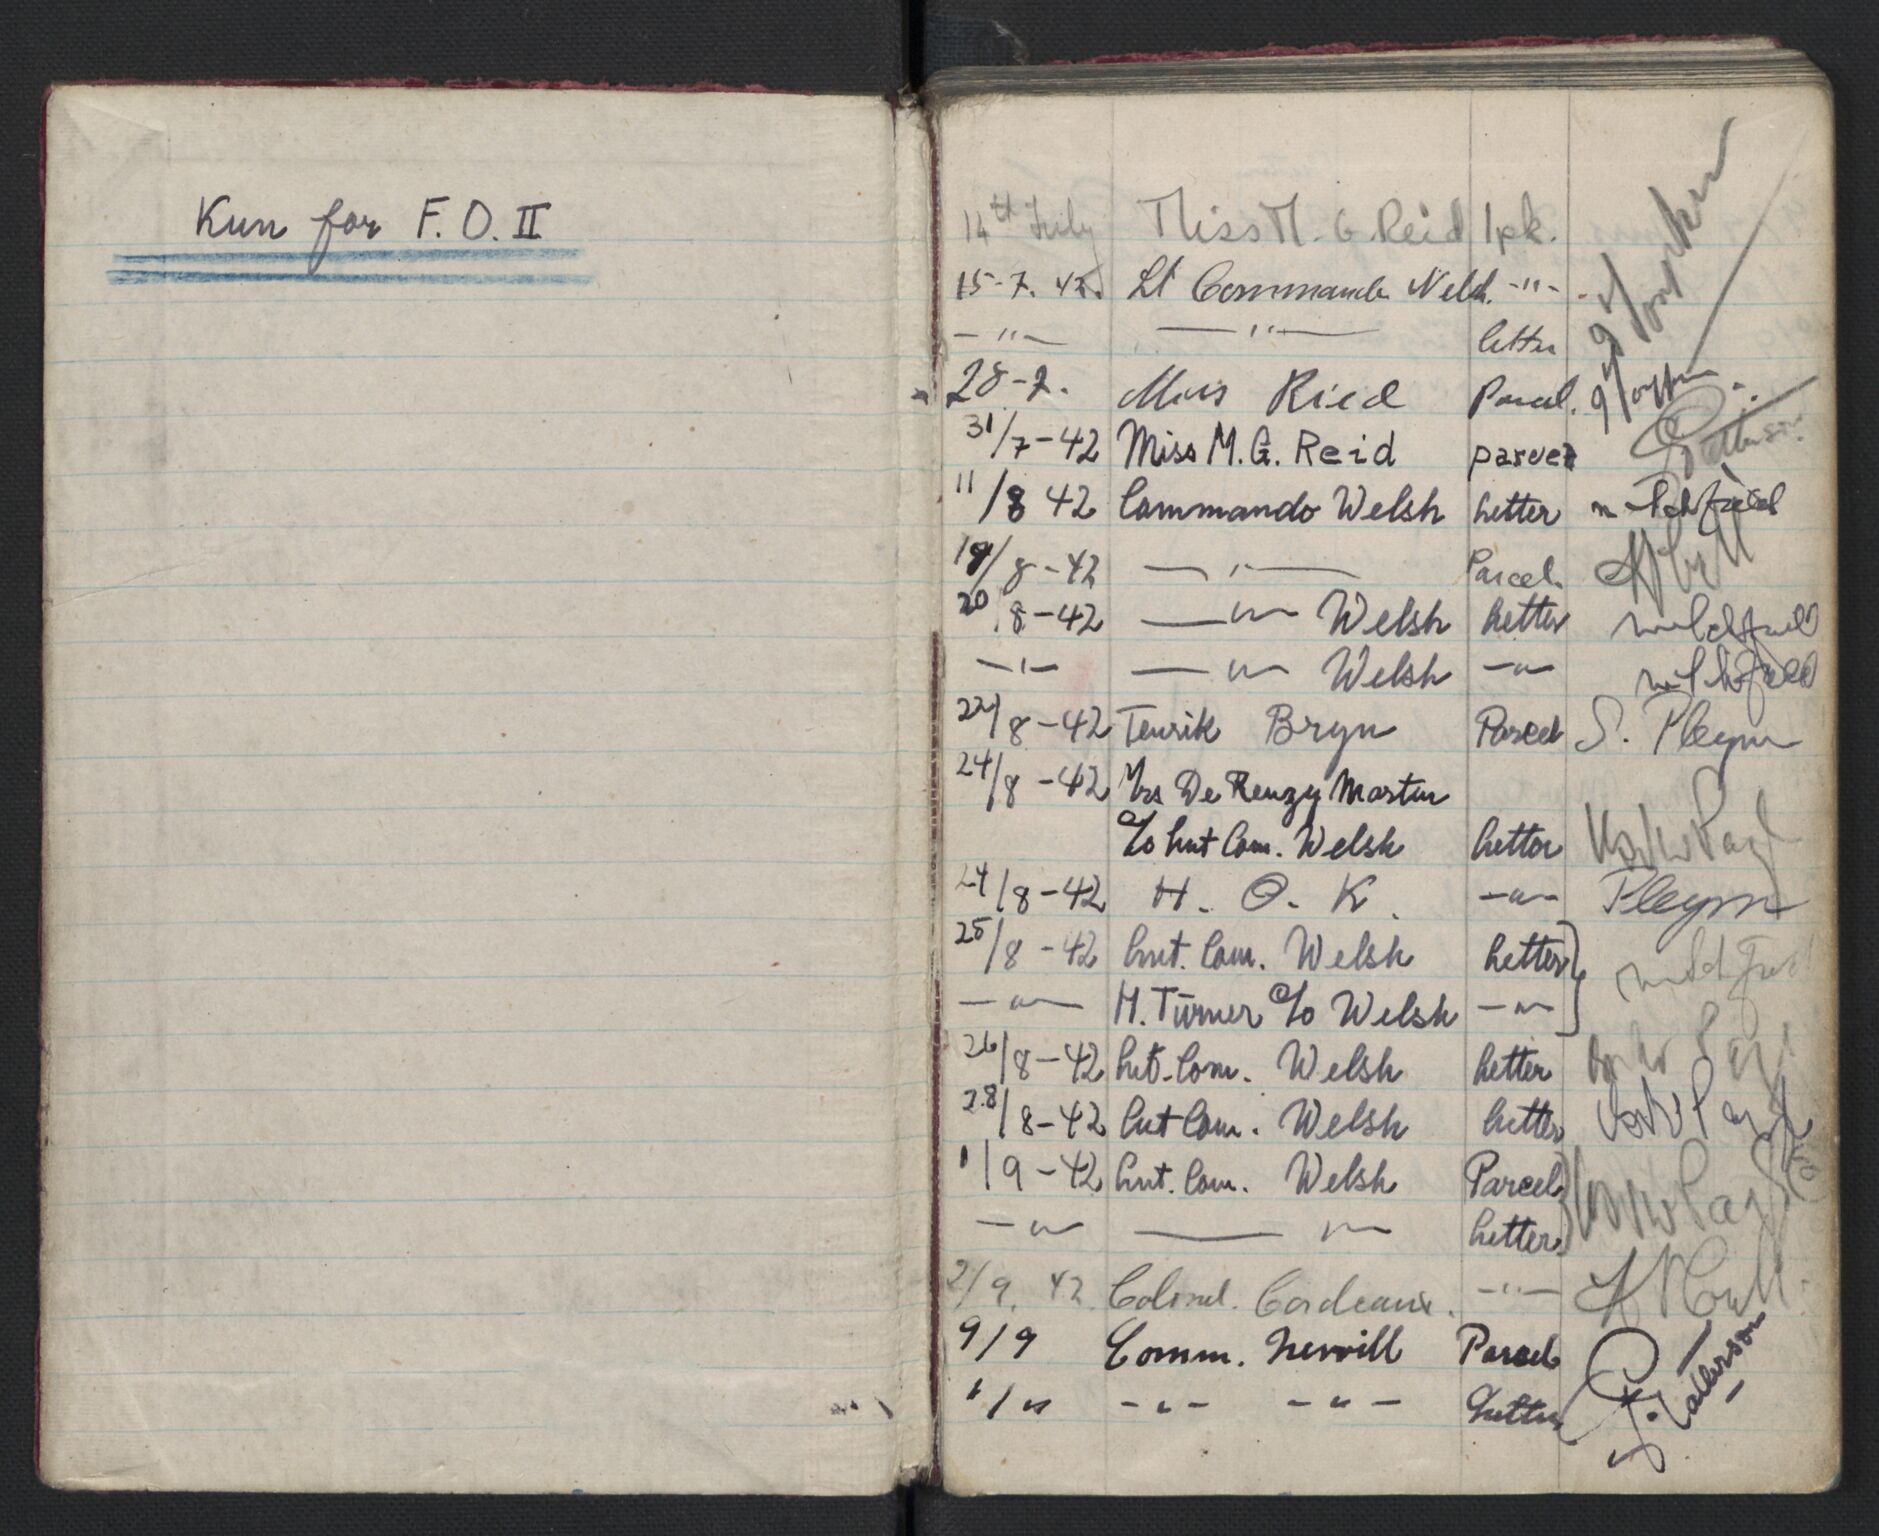 Kun for F.O. II
14th July Miss M. G. Reid 1 pk.
15-7. 42. Lt Commando Welsh. -"-
-"- -"- letter
28-7. Miss Ried Parcel.
31/7-42 Miss M.G. Reid parcel Patterson
11/8 42 Commando Welsh Letter
19/8-42 -"- Parcel
20/8-42 -"- Welsh Letter
-"- -"- Welsh -"-
22/8-42 Henrik Bryn Parcel S. Pleym
24/8-42 Mrs De Renzy Martin
c/o Lnt Com. Welsh Letter
24/8-42 H. O. K. -"- Pleym
25/8-42 Lnt. Com. Welsh Letter
-"- H. Turner c/o Welsh -"-
26/8-42 Lnt. Com. Welsh Letter
28/8-42 Lnt Com. Welsh Letter
1/9-42 Lnt. Com. Welsh Parcel
-"- -"- Letter
2/9. 42 Colonel. Cordeaux. -"-
9/9 Comm. Newill Parcel Patterson
"/" -"- -"- Letter